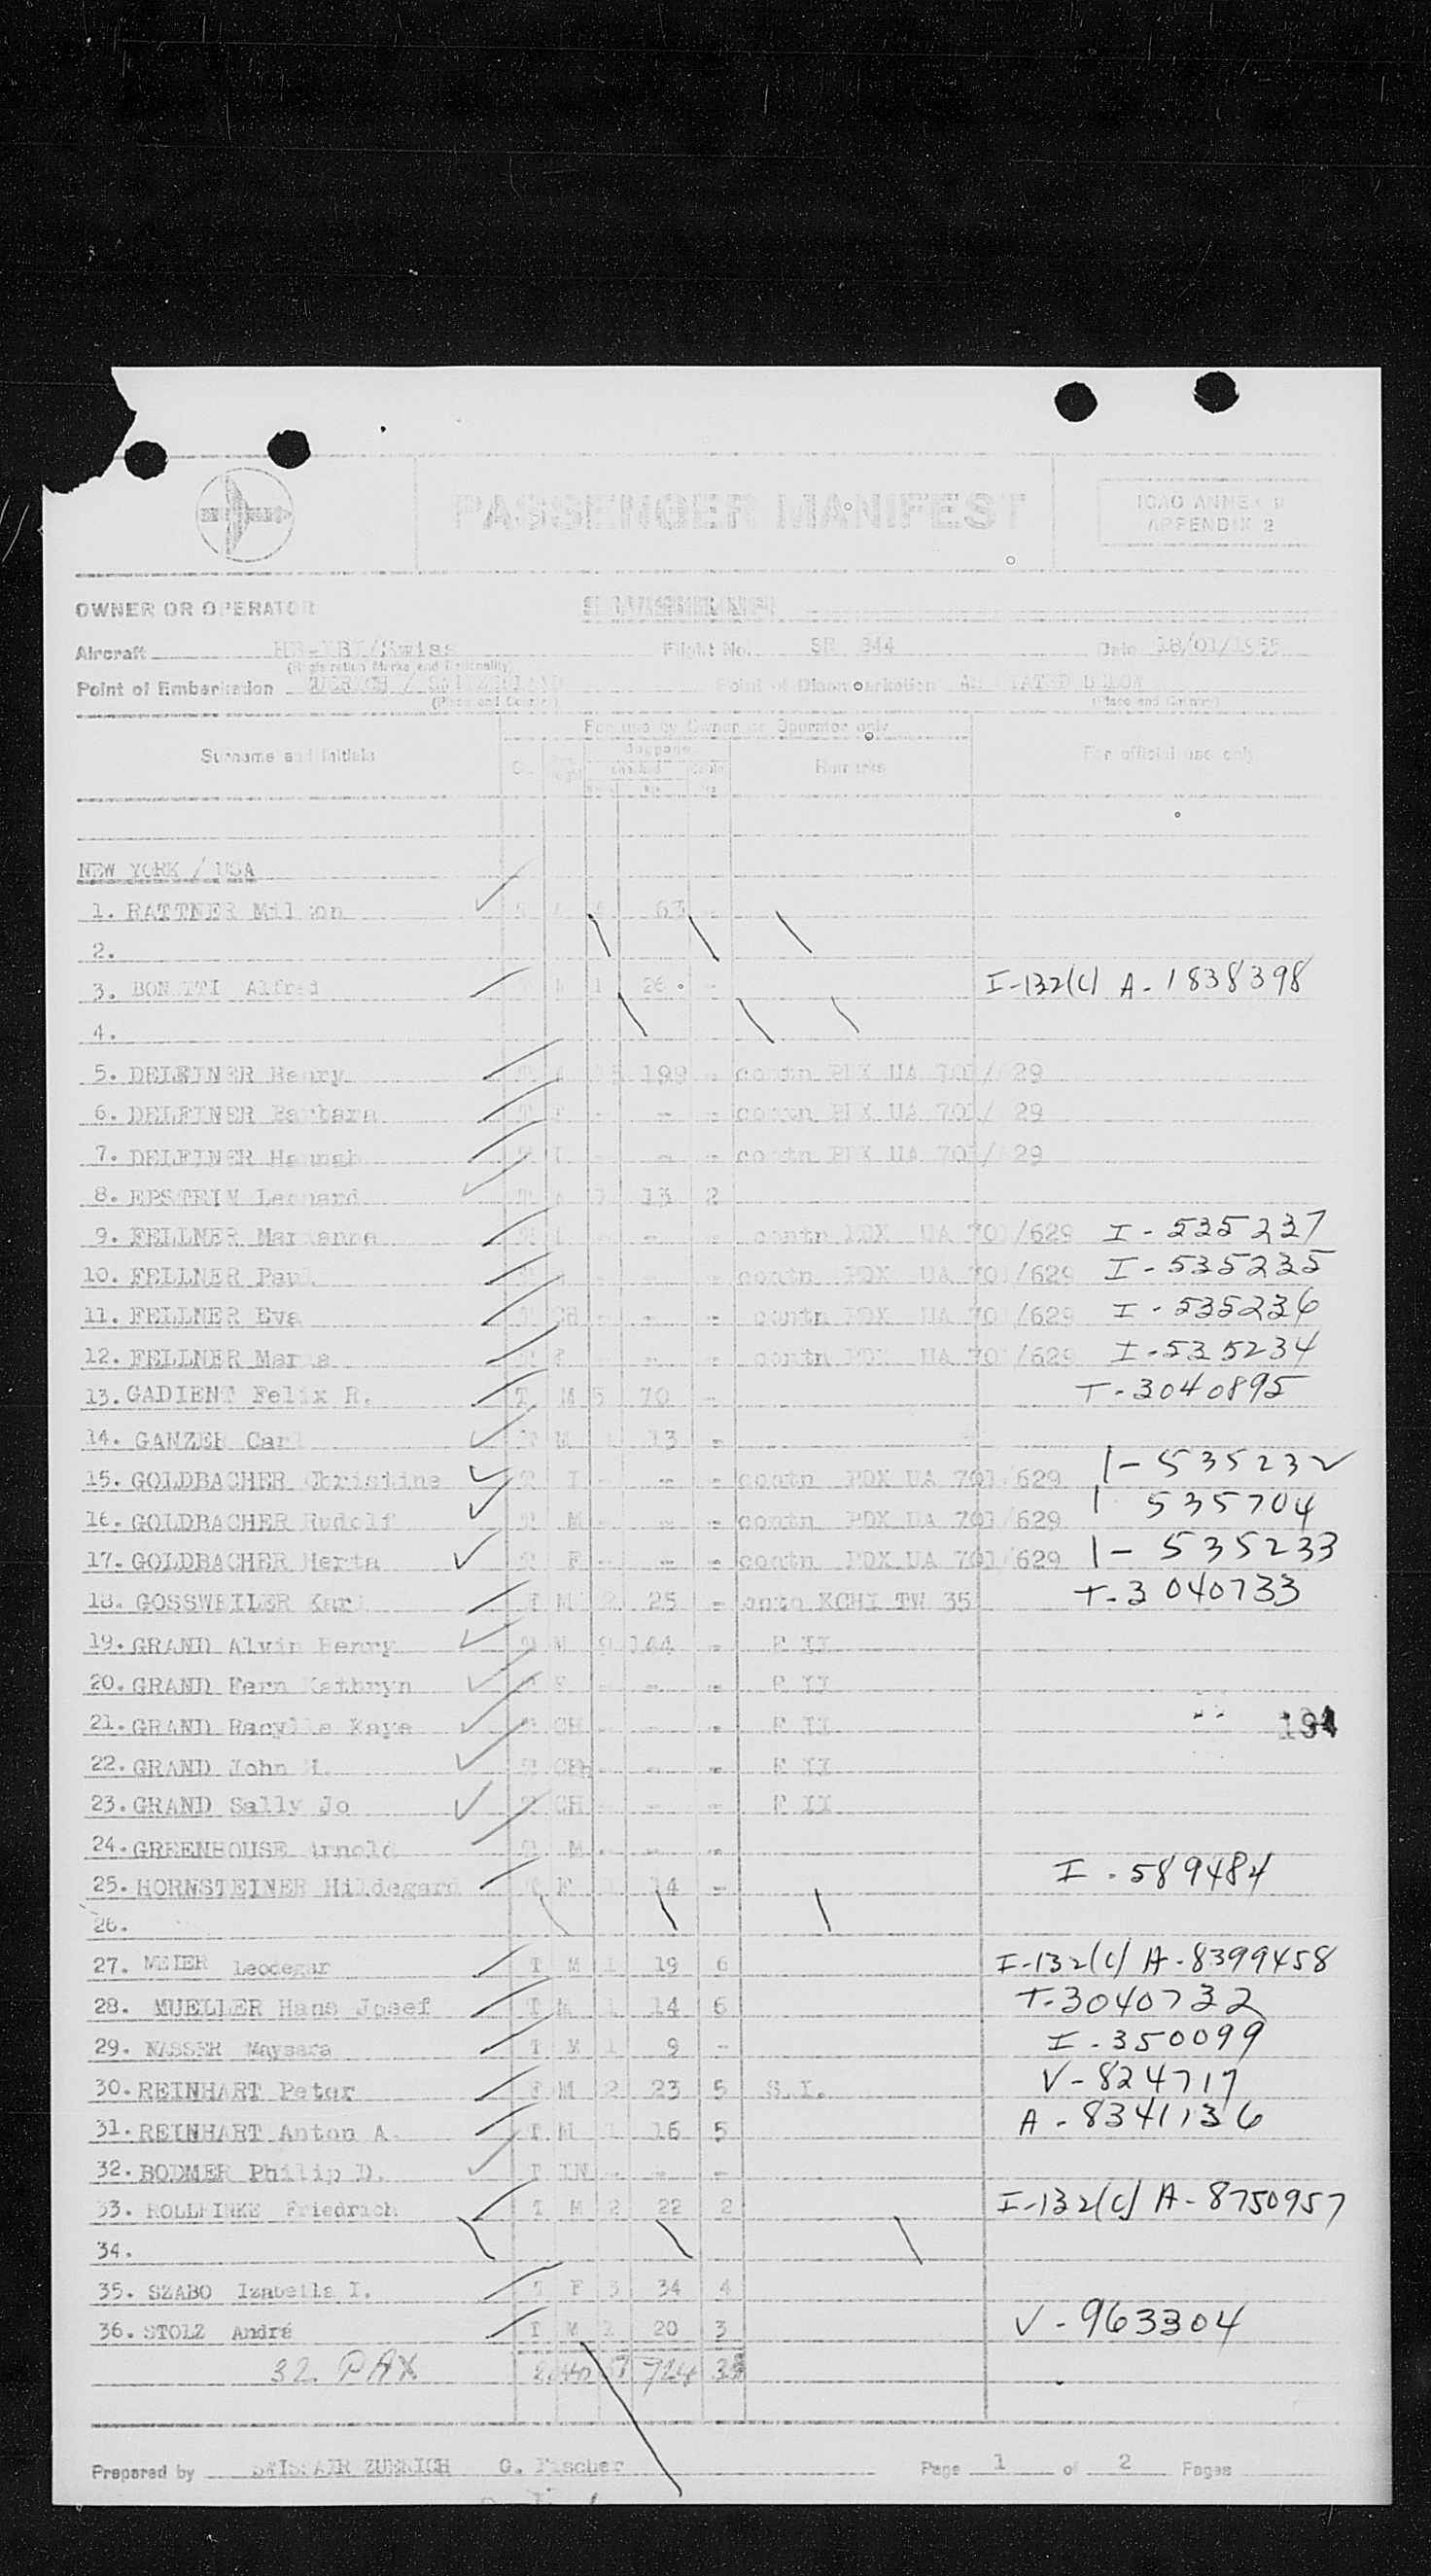 PASSENGER MANIFEST
ICAO ANNEX 9
APPENDIX 2
OWNER OR OPERATOR
Aircraft /Swiss Flight No. SR 844 Date 18/01/1955
(Registration Marks and Nationality)
Point of Embarkation ZUERICH / SWITZERLAND Point of Disembarkation AS STATED BELOW
(Place and Country) (Place and Country)
For use by Owner or Operator only
Surname and Initials Baggage Remarks For official use only
checked cabin
NEW YORK / USA
1. RATTNER Mil on 63 -
2.
3. BON TTI Alfred M 1 26 - I-132(c) A-1838398
4.
5. DELFINER Henry T 15 199 - contn PDX UA 701/ 29
6. DELFINER Barbara T F - - - contn PDX UA 701/ 29
7. DELFINER - - contn PDX UA 701/ 29
8. EPSTEIN Leonard T 13 2
9. FELLNER Marianne - - contn PDX UA 701/629 I-535237
10. FELLNER Paul - - contn PDX UA 701/629 I-535235
11. FELLNER Eva T CH - - - contn PDX UA 701/629 I-535236
12. FELLNER Mar a - - contn PDX UA 701/629 I-535234
13. GADIENT Felix R. T M 5 70 - T-3040895
14. GANZER Carl T M 13 -
15. GOLDBACHER Christine T I - - - contn PDX UA 701/629 I-535232
16. GOLDBACHER Rudolf T M - - - contn PDX UA 701/629 I 535704
17. GOLDBACHER Herta T F - - - contn PDX UA 701/629 I-535233
18. GOSSWEILER Karl T M 2 25 - KCHI TW 35 T-3040733
19. GRAND Alvin Henry T M 9 144 - F II
20. GRAND Fern Kathryn T F - - - F II
21. GRAND Kaye T CH - - - F II
22. GRAND John T CH - - - F II
23. GRAND Sally Jo T CH - - - F II
194
24. GREENHOUSE Arnold T M - - -
25. HORNSTEINER Hildegard T F 1 14 - I-589484
26.
27. MEIER Leodegar T M 1 19 6 I-132(c) A-8399458
28. MUELLER Hans Josef T M 1 14 6 T-3040732
29. NASSER Maysara T M 1 9 - I-350099
30. REINHART Peter F M 2 23 5 S.I. V-824717
31. REINHART Anton A. T M 1 16 5 A-8341136
32. BODMER Philip D. IN - - -
33. Friedrich T M 2 22 2 I-132(c) A-8750957
34.
35. SZABO Izabella I. T F 3 34 4
36. STOLZ André T M 2 20 3 V-963304
32 PAX 724
Prepared by SWISSAIR ZUERICH G. Fischer Page 1 of 2 Pages